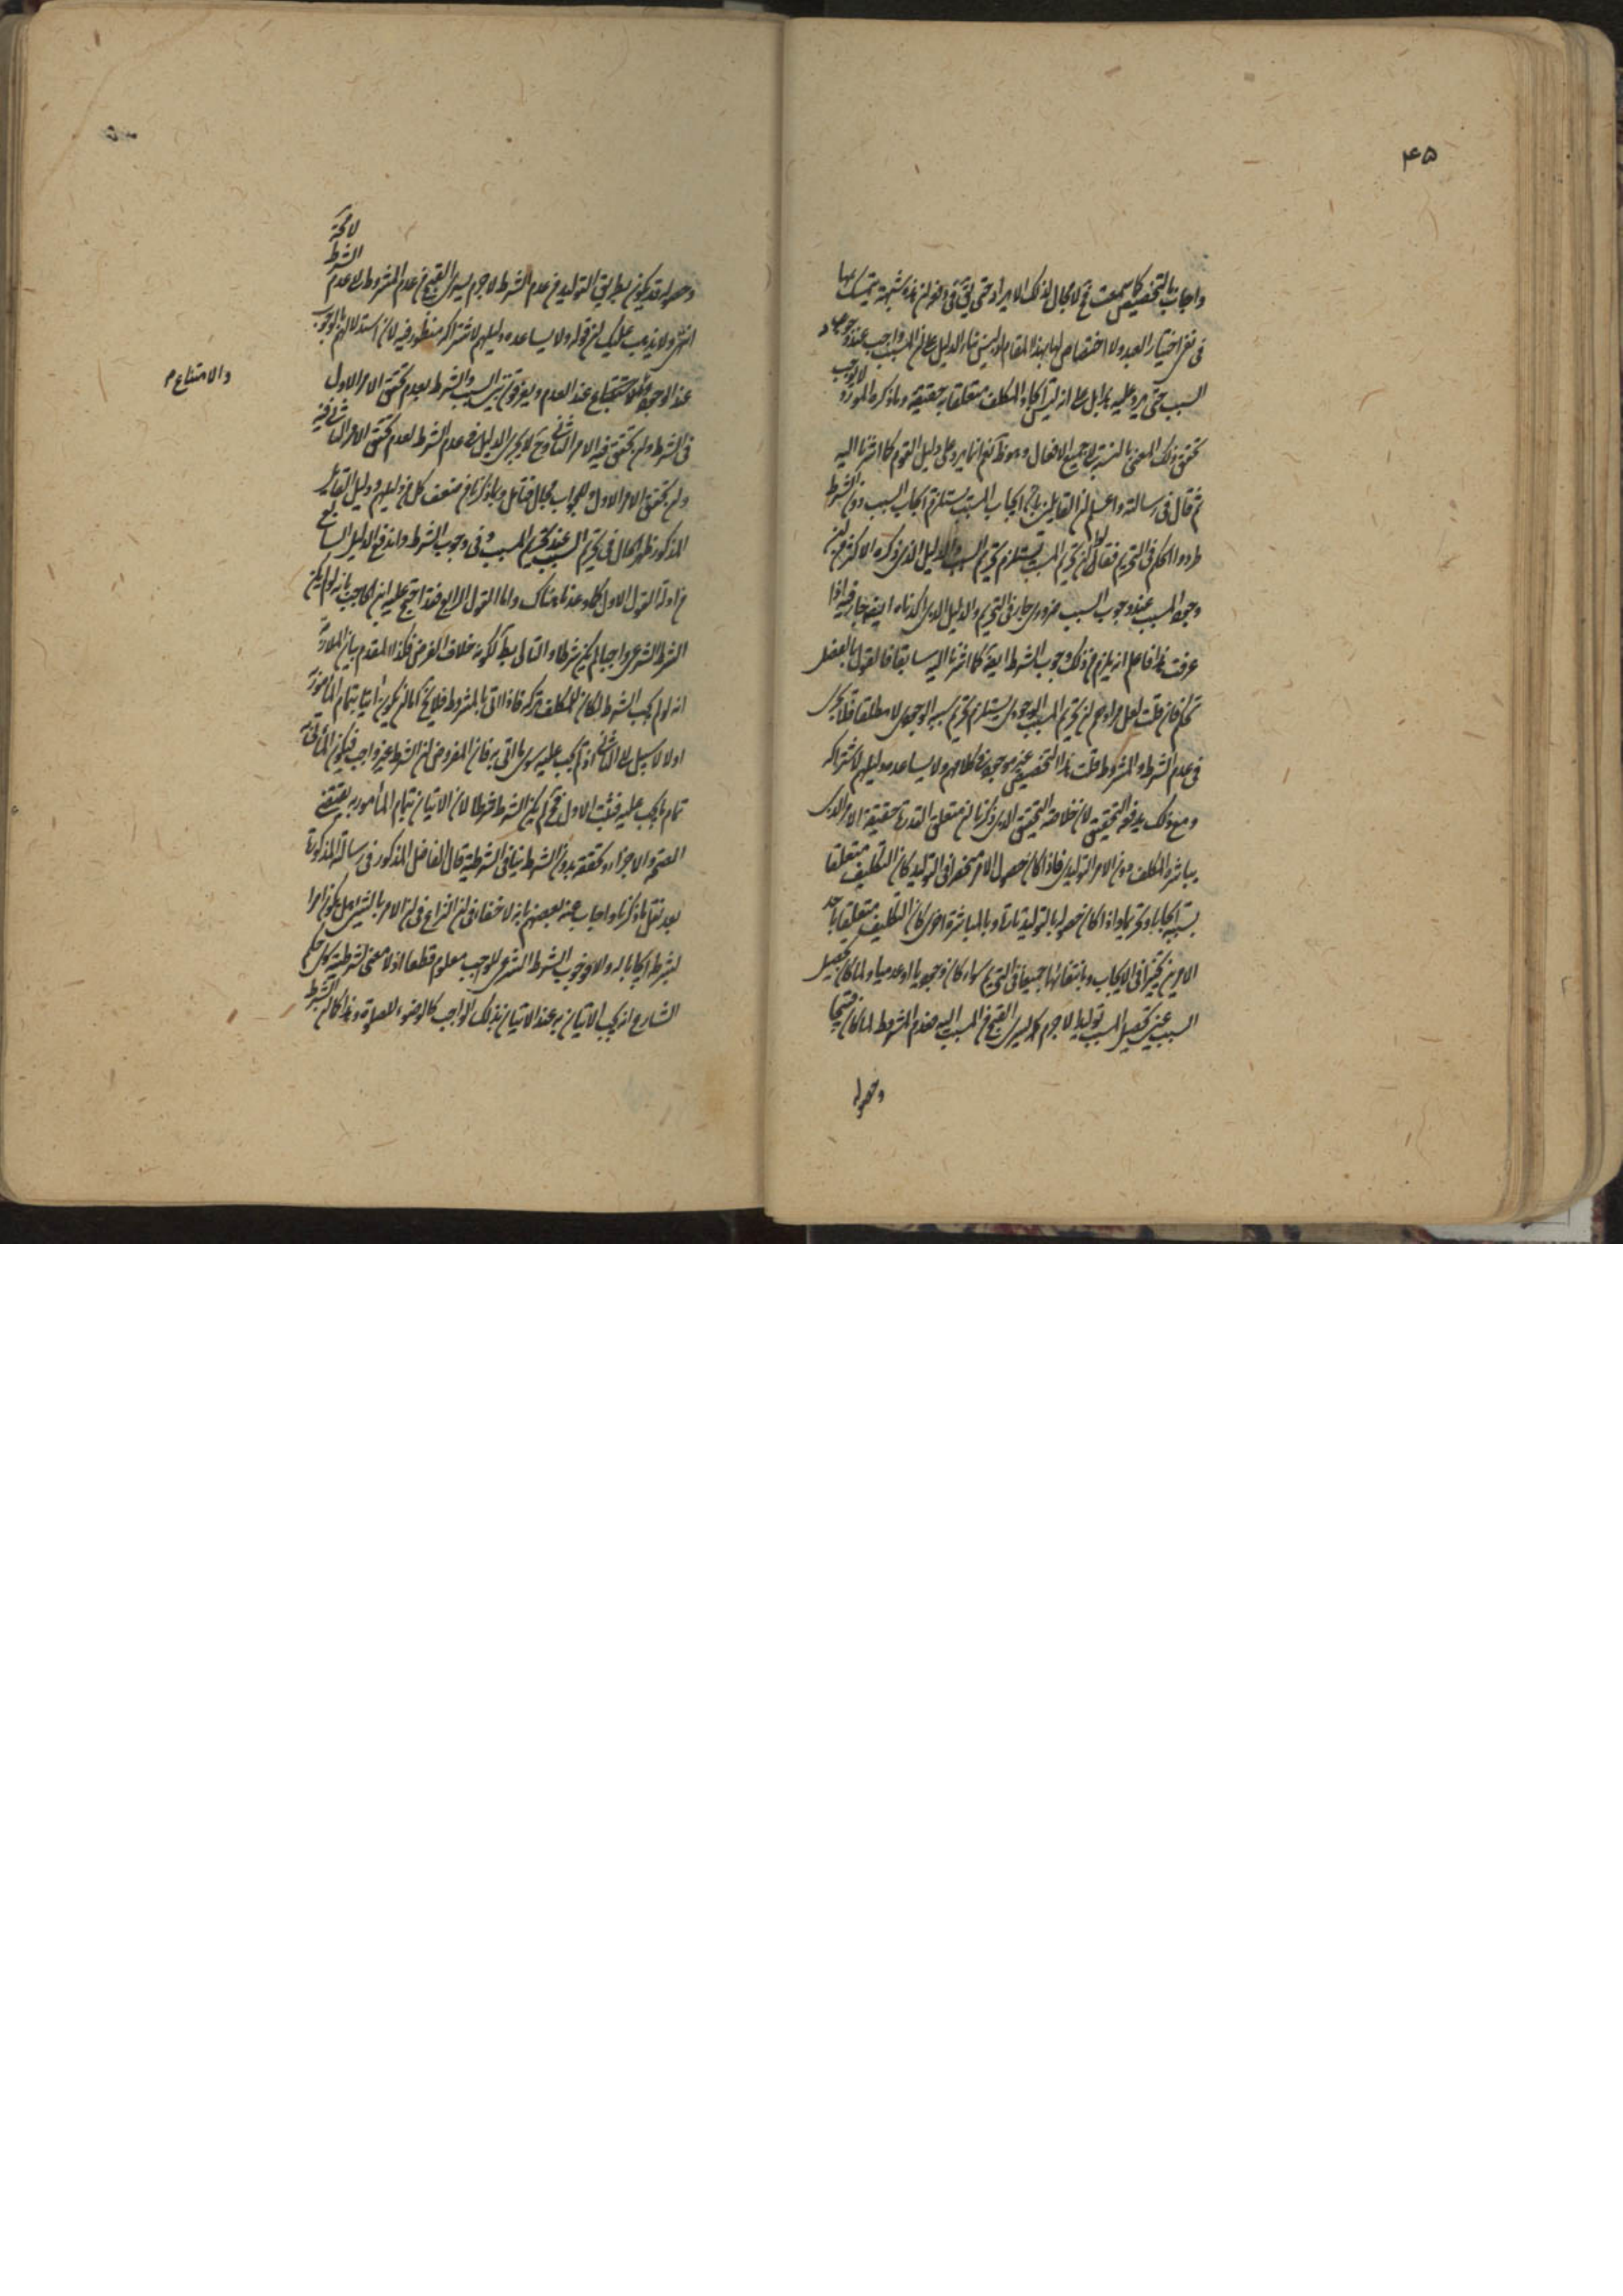 ۴۵
واجاب بالتخصيص كما سمعت فح لا مجال لذلك الايراد حتى
فى نفى اختيار العبد ولا اختصاص لها بهذا المقام وليس بناء الدليل على ان المسبب واجب عند وجود
السبب حتى يرد عليه بل على انه ليس ايجاد المكلف متعلقا به حقيقة وما ذكره المورد لا يوجب
تحقق ذلك المعنى بالنسبة الى جميع الافعال وهو ظ نعم انما يرد على دليل القوم كما اشرنا اليه
ثم قال فى رسالته واعلم ان القايلين بان ايجاب المسبب يستلزم ايجاب السبب دون الشرط
طردوا الحكم فى التحريم فقالوا ان تحريم المسبب يستلزم تحريم السبب والدليل الذى ذكره الاكثر من ان
وجود المسبب عند وجوب السبب ضرورى جار فى التحريم والدليل الذى ذكرناه ايضا جار فيه اذا
عرفت هذا فاعلم انه يلزم من ذلك وجوب الشرط ايضا كما اشرنا اليه سابقا فالقول بالفصل
تحكم فان قلت لعل مرادهم ان تحريم المسبب الوجودى يستلزم تحريم سببه الوجودى لا مطلقا فلا يجرى
فى عدم الشرط والمشروط قلت هذا التخصيص غير موجود فى كلامهم ولا يساعده دليلهم لاشتراكه
ومع ذلك يدفعه التحقيق لان خلاصة التحقيق الذى ذكرنا ان متعلق القدرة حقيقة الامر الذى
يباشره المكلف دون الامر التوليدى فاذا كان حصول الامر منحصرا فى التوليد كان التكليف متعلقا
بسببه ايجابا وتحريما واذا كان حصوله بالتوليد تارة وبالمباشرة اخرى كان التكليف متعلقا باحد
الامرين تخييرا فى الايجاب وبانتفائهما جميعا فى التحريم سواء كان وجوديا او عدميا ولما كان تحصيل
السبب عين تحصيل المسبب توليدا لا جرم يسرى القبح من المسبب اليه فعدم المشروط لما كان قبيحا
وحصوله
وحصوله قد يكون بطريق التوليد من عدم الشرط لا جرم يسرى القبح من عدم المشروط الى عدم الشرط لا محة
انتهى ولا يذهب عليك ان قوله ولا يساعده دليلهم لاشتراكه منظور فيه لان استدلالهم بالوجوب
والامتناع م
عند الوجود والامتناع عند العدم ويفرقون بين السبب والشرط بعدم تحقق الامر الاول
فى الشرط وان تحقق فيه الامر الثانى وح لا يجرى الدليل فى عدم الشرط لعدم تحقق الامر الثانى فيه
وان تحقق الامر الاول وللجواب مجال فتأمل وبما ذكرنا من ضعف كل من دليلهم ودليل القايل
المذكور ظهر الحال فى تحريم السبب عند تحريم المسبب وفى وجوب الشرط واندفع الدليل السابع
من ادلة القول الاول كما وعدناه هناك واما القول الرابع فقد احتج عليه ابن الحاجب بانه لو لم يكن
الشرط الشرعى واجبا لم يكن شرطا والتالى بط لكونه خلاف الفرض فكذا المقدم بيان الملازمة
انه لو لم يجب الشرط لكان للمكلف تركه فاذا اتى بالمشروط فلا يخ اما ان يكون آتيا بتمام المأمور به
اولا لا سبيل الى الثانى اذ لم يجب عليه سوى ما اتى به فان المفروض ان الشرط غير واجب فيكون المأتى به
تمام ما يجب عليه فثبت الاول فح لم يكن الشرط شرطا لان الاتيان بتمام المأمور به يقتضى
الصحة والاجزاء وتحققه بدون الشرط ينافى الشرطية قال الفاضل المذكور فى رسالته المذكورة
بعد نقل ما ذكرنا واجاب عنه بعضهم بانه لا خفاء فى ان النزاع فى ان الامر بالشئ هل يكون امرا
بشرطه ايجابا له والا فوجوب الشرط الشرعى للواجب معلوم قطعا اذ لا معنى لشرطيته سوى حكم
الشارع انه يجب الاتيان به عند الاتيان بذلك الواجب كالوضوء للصلوة وهذا كما ان الشرط